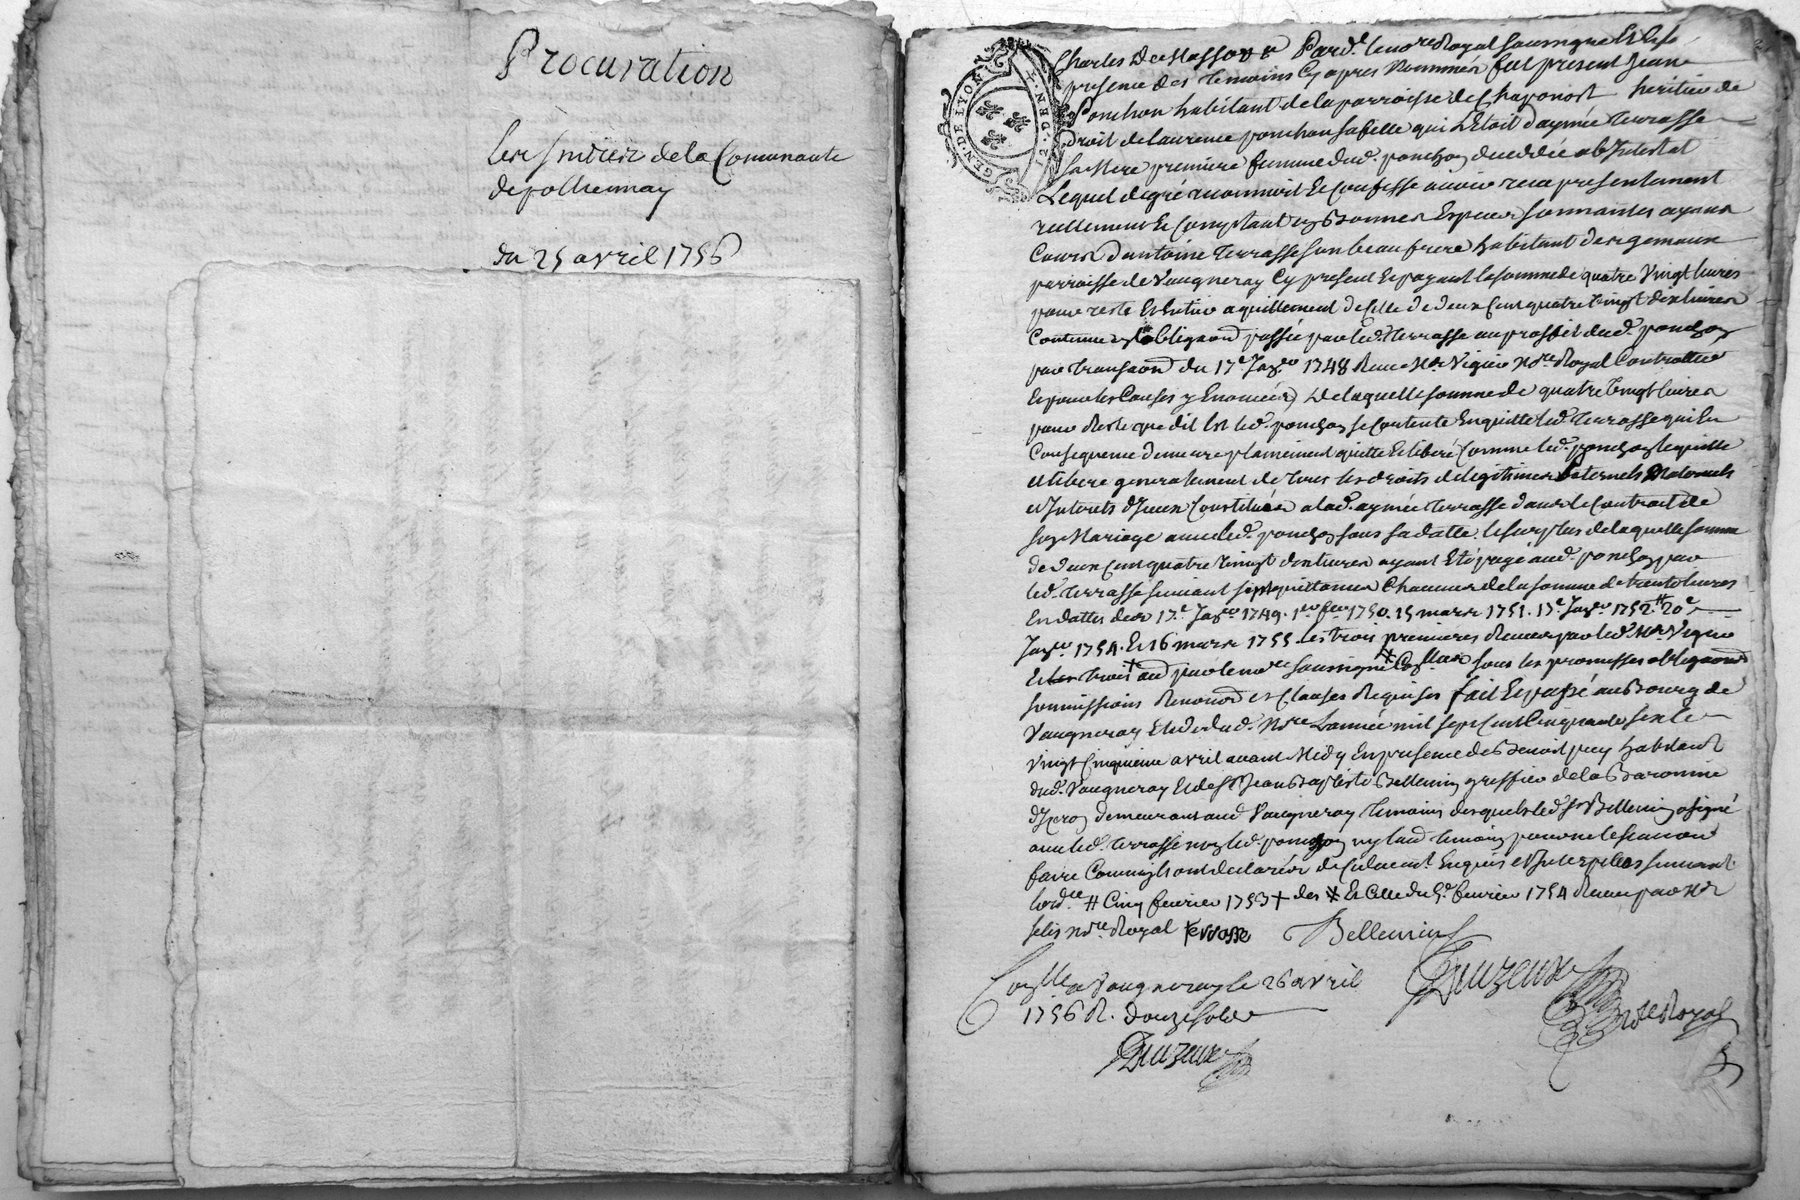 Procuration
les sindics de la Comunauté
de pollionnay
du 25 avril 1756
GEN·DE·LYON
12·DEN·
Pard.t le no.re Royal soussigné Et En
presence des temoins Cy apres Nommés fut present Jean
Ponchon habitant de la parroisse de Chaponost heritier de
Droit de laurence ponchon sa fille qui L'Etoit d'aymée terrasse
sa Mere premiere femme dud. ponchon decedée ab Intestat
Lequel de gré reconnoit Et Confesse avoir receu presentement
reellement Et Comptant en Bonnes Especes sonnantes ayant
Cours d'antoine terrasse son beau frere habitant des gemaux
parroisse de Vaugneray Cy present Et payant la somme de quatre Vingt livres
pour reste Et Entier aquittement de Celle de deux Cent quatre Vingt dix livres
Contenue en l'obligaon passée par led. terrasse au proffit dud. ponchon
par transaon du 17e Janv.er 1748 Receue Me Viguier No.re Royal Controllée
Et pour les Causes y Enoncées) De laquelle somme de quatre Vingt livres
pour Reste que dit Est led. ponchon se Contente En quitte led. terrasse qui En
Consequence demeure plainement quitte Et liberé Comme led. ponchon le quitte
et libere generalement de tous les droits de legitimes paternels Maternels
et Interets d'Iceux Constitués a lad. aymée terrasse dans le Contract de
son Mariage avec led. ponchon sous sa datte. le surplus de laquelle somme
de deux Cent quatre Vingt dix livres ayant Eté payé aud. ponchon par
led. terrasse suivant sept quittances Chacune de la somme de trente livres
En dattes des 17.e Janv.er 1749. 1.er fev.er 1750. 15 mars 1751. 17.e Janv.er 1752. # 20e
Janv.er 1754. Et 16 mars 1755. les trois premieres Receues par led. Me Viguier
Et les trois + aud par le no.re soussigné ⁜ sous les promesses obligaons
soumissions Renonons et Clauses Requises fait Et passé au Bourg de
Vaugneray Etude dud. No.re L'année mil sept Cent Cinquante six le
Vingt Cinquieme avril avant Midy En presence de Benoit pey habitant
dud. Vaugneray Et de Sr Jean Baptiste Bellemin greffier de la Baronnie
d'Yzeron demeurant aud. Vaugneray temoins desquels led. Sr Bellemin a signé
avec led. terrasse non led. ponchon ny laud temoin pour ne le scavoir
faire Comme ils ont declaré de Ce duement Enquis et Interpellés suivant
l'ord.ce # Cinq fevrier 1753 + des ⁜ Et Celle du 5.e fevrier 1754 Receue par Me
no.re Royal terrasse Bellemin
Con.lle a Vaugneray le 26 avril
1756 R. douze sols
No.re Royal